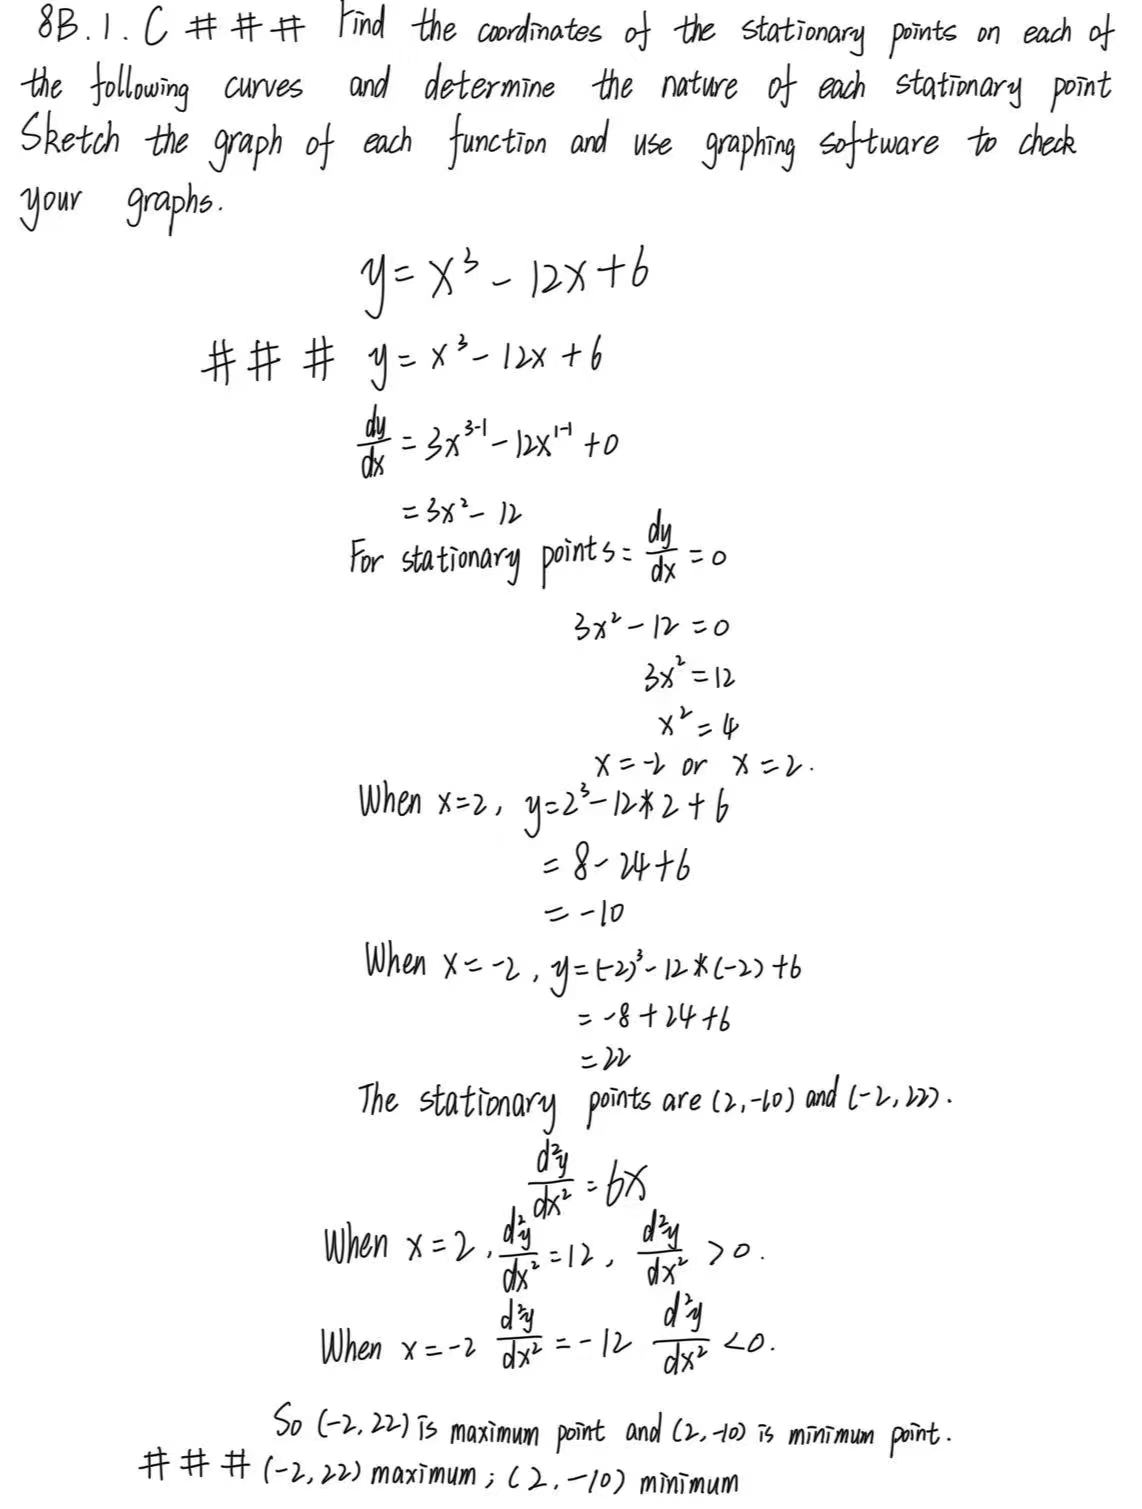 8B.1.C # # # Find the coordinates of the stationary points on each of
the following curves and determine the nature of each stationary point
Sketch the graph of each function and use graphing software to check
your graphs.
y = x³ - 12x + 6
# # # y = x³ - 12x + 6
dy/dx = 3x³⁻¹ - 12x¹⁻¹ + 0
= 3x² - 12
For stationary points = dy/dx = 0
3x² - 12 = 0
3x² = 12
x² = 4
x = -2 or x = 2.
When x = 2, y = 2³ - 12 * 2 + 6
= 8 - 24 + 6
= -10
When x = -2, y = (-2)³ - 12 * (-2) + 6
= -8 + 24 + 6
= 22
The stationary points are (2, -10) and (-2, 22).
d²y/dx² = 6x
When x = 2, d²y/dx² = 12, d²y/dx² > 0.
When x = -2 d²y/dx² = -12 d²y/dx² < 0.
So (-2, 22) is maximum point and (2, -10) is minimum point.
# # # (-2, 22) maximum; (2, -10) minimum